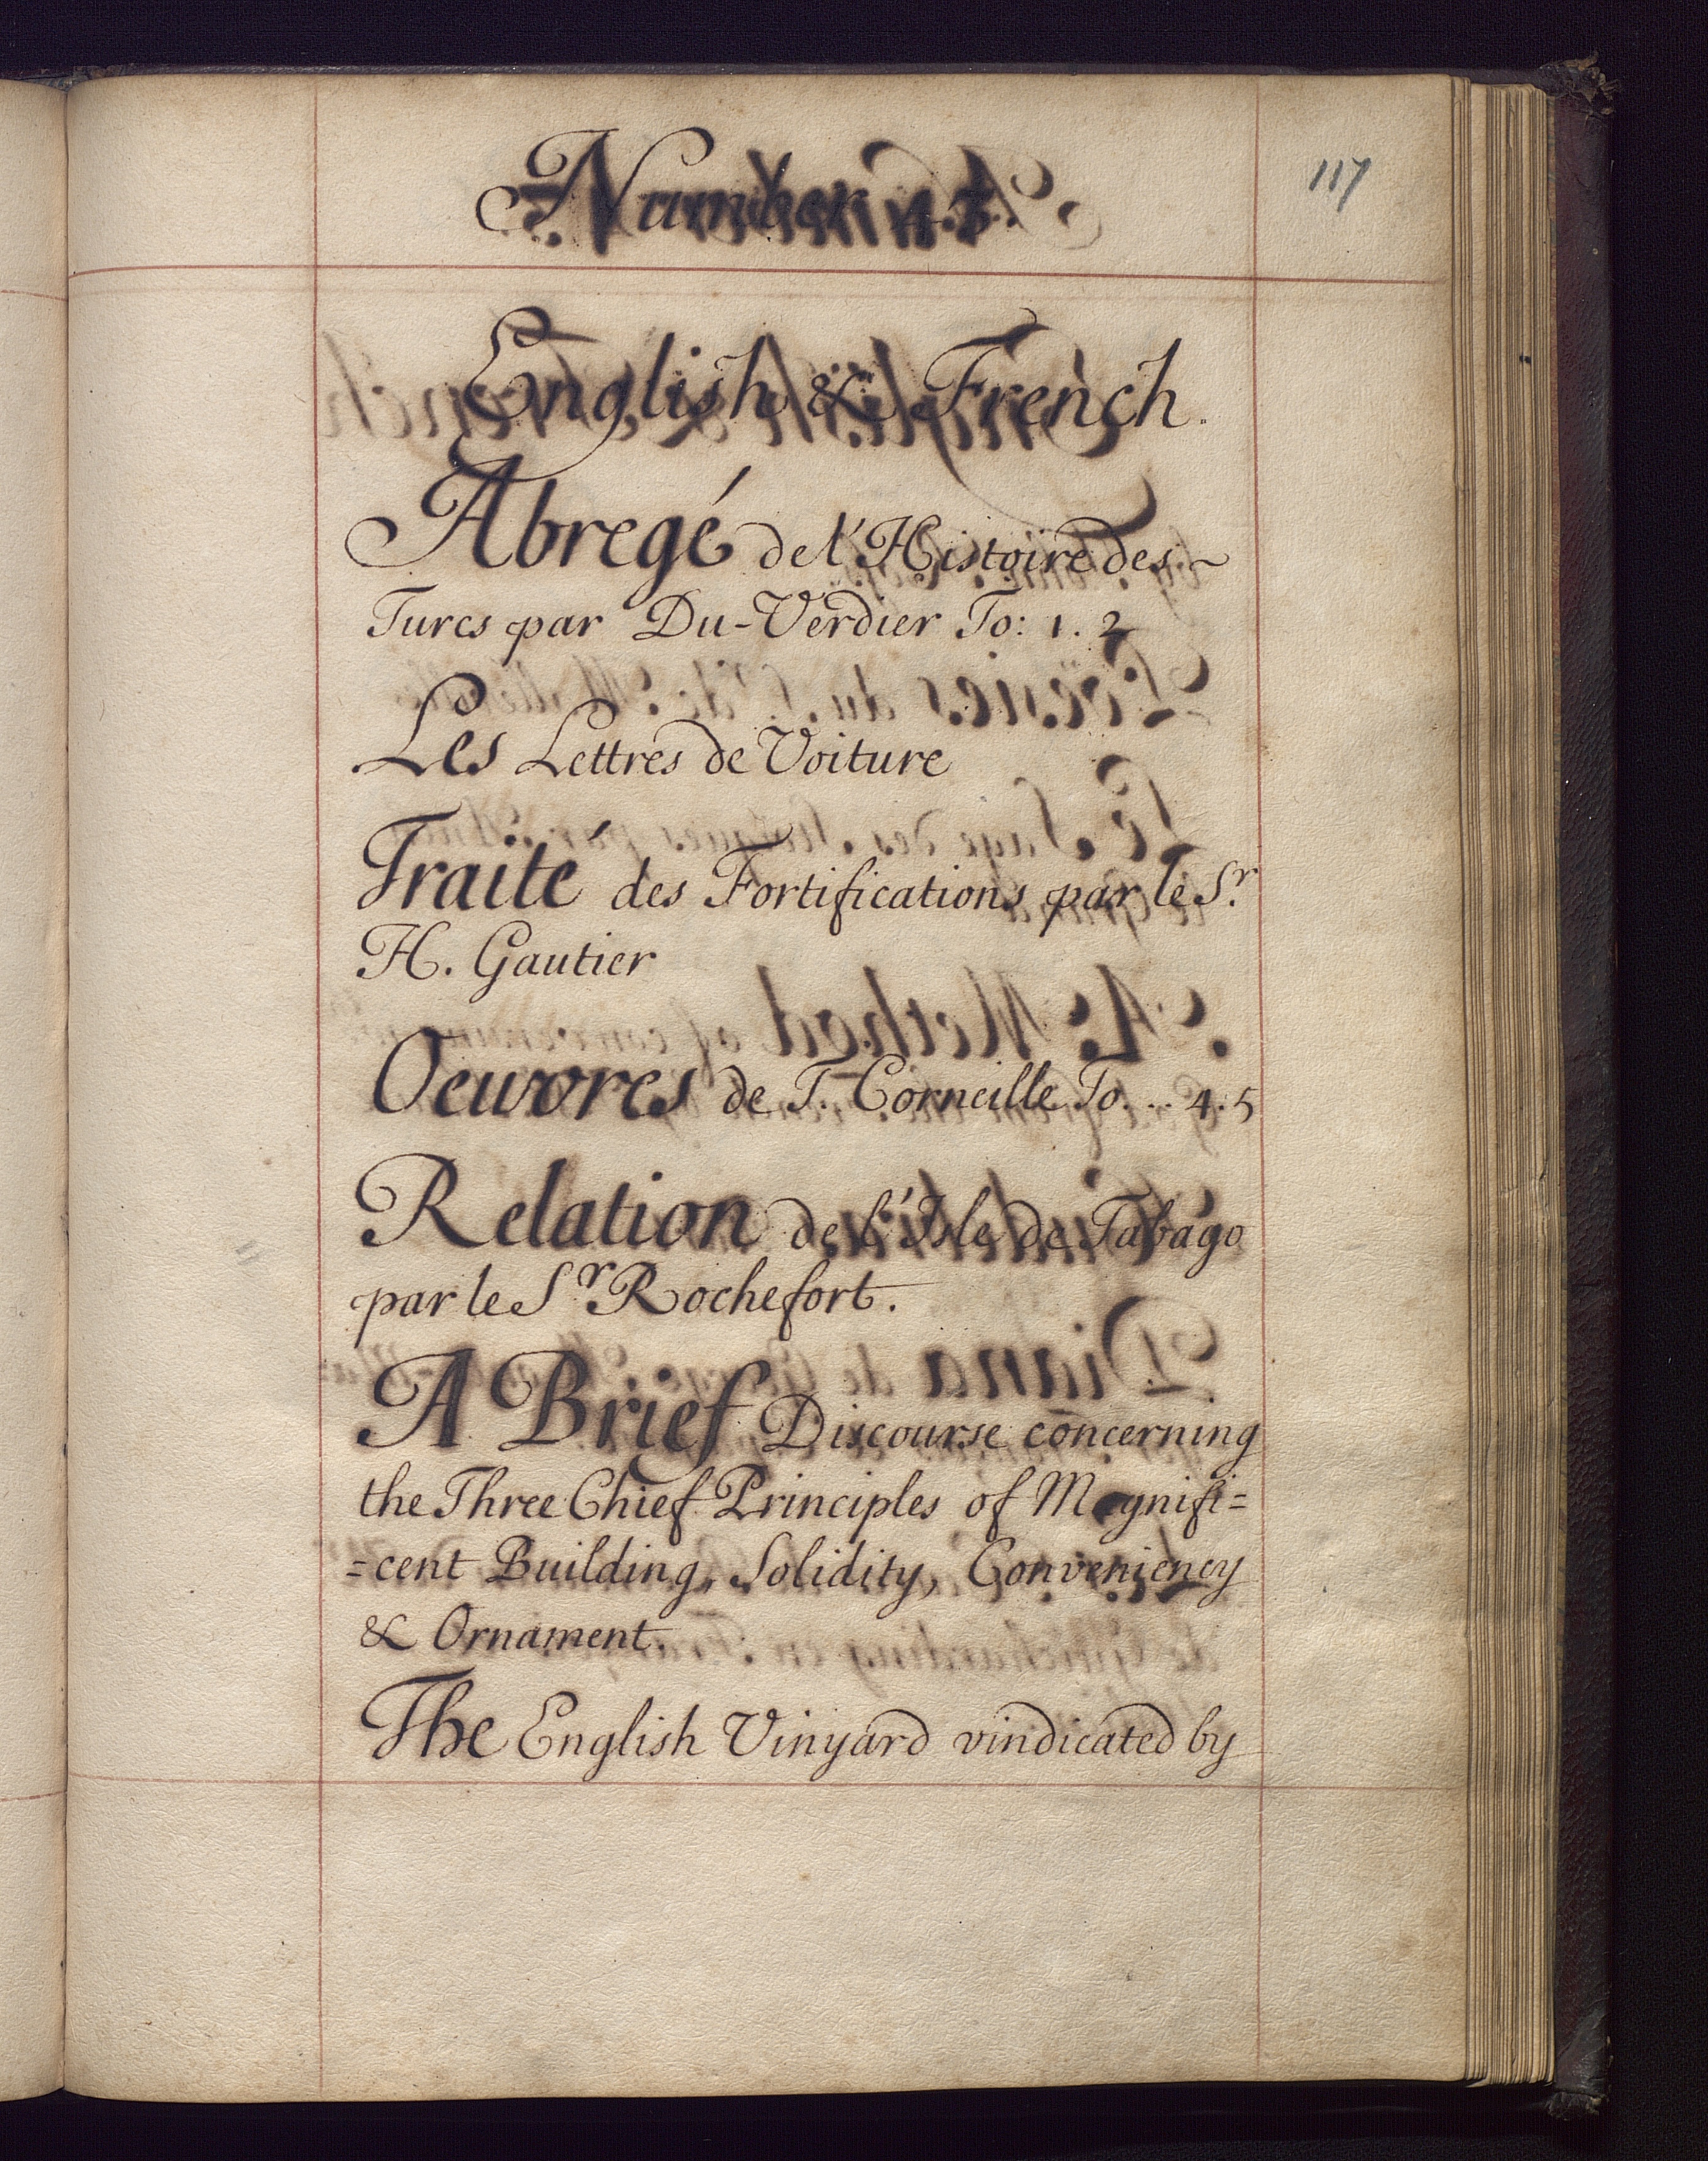 117
Number
English & French.
Abregé de l'Histoire des ~
Turcs par Du-Verdier To: 1. 2
Les Lettres de Voiture
Traité des Fortifications par le Sr.
H. Gautier
Oeuvres de T. Corneille To. .. 4. 5
Relation de l'Isle de Tabago
par le Sr. Rochefort.
A Brief Discourse concerning
the Three Chief Principles of Magnifi=
=cent Building, Solidity, Conveniency
& Ornament.
The English Vinyard vindicated by